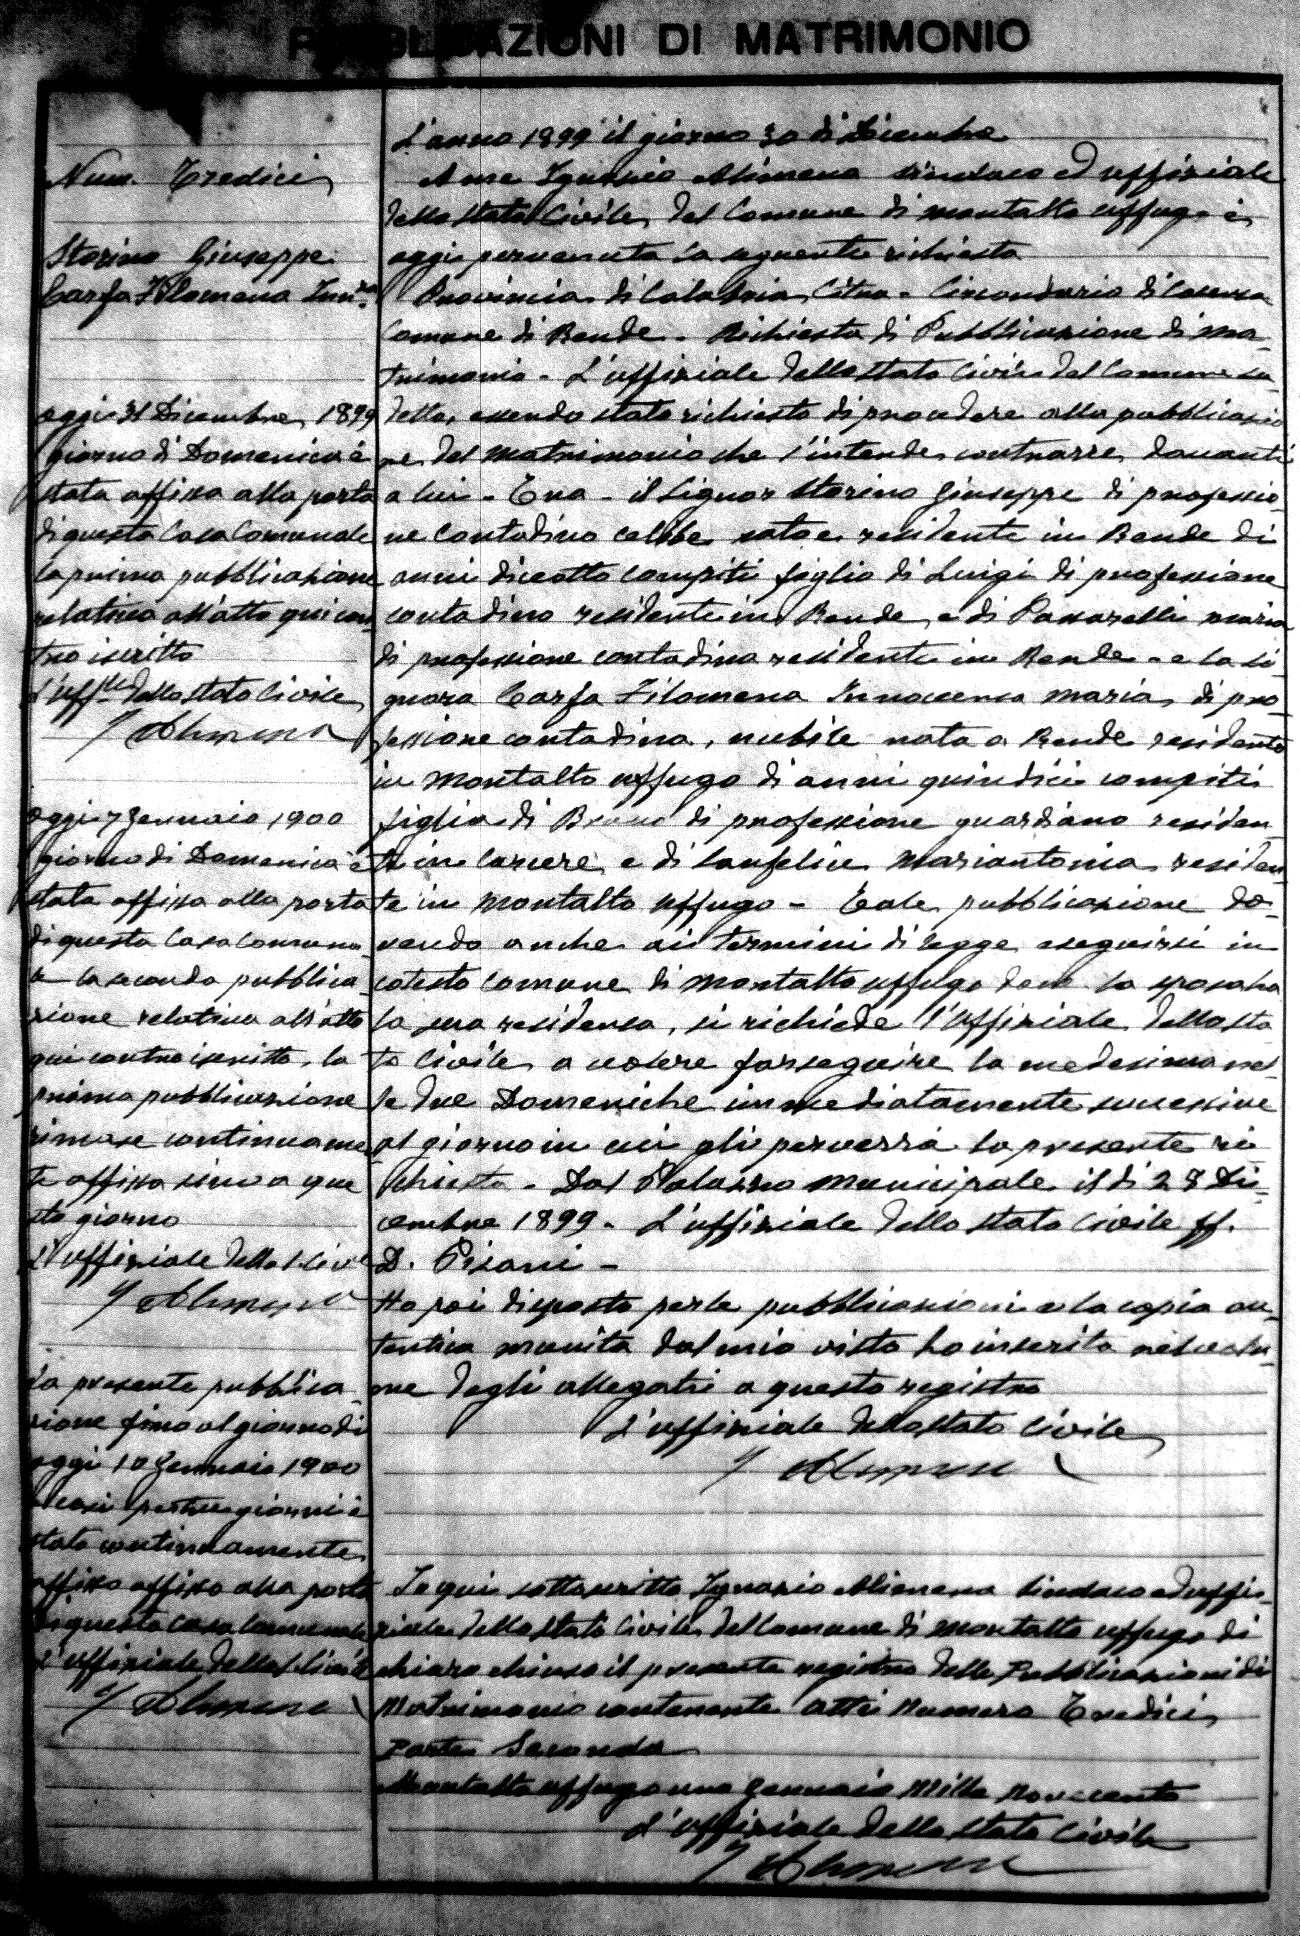 PUBBLICAZIONI DI MATRIMONIO
Num. Tredici
Storino Giuseppe
Carfa Filomena Inn.za
oggi 31 Dicembre 1899
giorno di Domenica è
stata affissa alla porta
di questa Casa Comunale
la prima pubblicazione
relativa all'atto qui con
tro iscritto
L'uff.le dello stato Civile
I Alimena
oggi 7 Gennaio 1900
giorno di Domenica è
stata affissa alla porta
di questa Casa Comuna
le la seconda pubblica
zione relativa all'atto
qui contro iscritto, la
prima pubblicazione
rimase continuamen
te affissa sino a que
sto giorno
L'uffiziale dello S. Civile
I Alimena
La presente pubblica
zione fino al giorno di
oggi 10 Gennaio 1900
e così per tre giorni è
stata continuamente
affissa affissa alla porta
di questa casa Comunale
L'uffiziale dello S. Civile
I Alimena
L'anno 1899 il giorno 30 di Dicembre
A me Ignazio Alimena Sindaco ed uffiziale
dello stato Civile del Comune di Montalto Uffugo è
oggi pervenuta la seguente richiesta
Provincia di Calabria Citra - Circondario di Cosenza
Comune di Rende - Richiesta di Pubblicazione di Ma-
trimonio - L'uffiziale dello stato Civile del Comune su
detto, essendo stato richiesto di procedere alla pubblicazio
ne del matrimonio che s'intende contrarre davanti
a lui - Tra - il Signor Storino Giuseppe di professio-
ne Contadino celibe nato e residente in Rende di
anni diciotto compiti figlio di Luigi di professione
contadino residente in Rende, e di Passarelli Maria
di professione contadina residente in Rende - e la Si
gnora Carfa Filomena Innocenza Maria, di pro-
fessione contadina, nubile nata a Rende residente
in Montalto Uffugo di anni quindici compiti
figlia di Bruno di professione guardiano residen
te in Carcere e di Sanfelice Mariantonia residen-
te in Montalto Uffugo - Tale pubblicazione do-
vendo anche ai termini di legge eseguirsi in
cotesto Comune di Montalto Uffugo dove la sposa ha
la sua residenza, si richiede l'Uffiziale dello sta
to Civile a volere far seguire la medesima nel-
le due Domeniche immediatamente successive
al giorno in cui gli perverrà la presente ri
chiesta - Dal Palazzo Municipale il dì 28 Di-
cembre 1899 - L'uffiziale dello stato Civile ff.
D. Pisani -
Ho poi disposto per le pubblicazioni e la copia au-
tentica munita dal mio visto ho inserita nel volu-
me degli allegati a questo registro
L'uffiziale dello stato Civile
I Alimena
Io qui sottoscritto Ignazio Alimena Sindaco ed uffi-
ziale dello stato Civile del Comune di Montalto Uffugo di
chiaro chiuso il presente registro delle Pubblicazioni di
Matrimonio contenente atti Numero Tredici
parte Seconda
Montalto Uffugo uno Gennaio Mille Novecento
L'uffiziale dello stato Civile
I Alimena